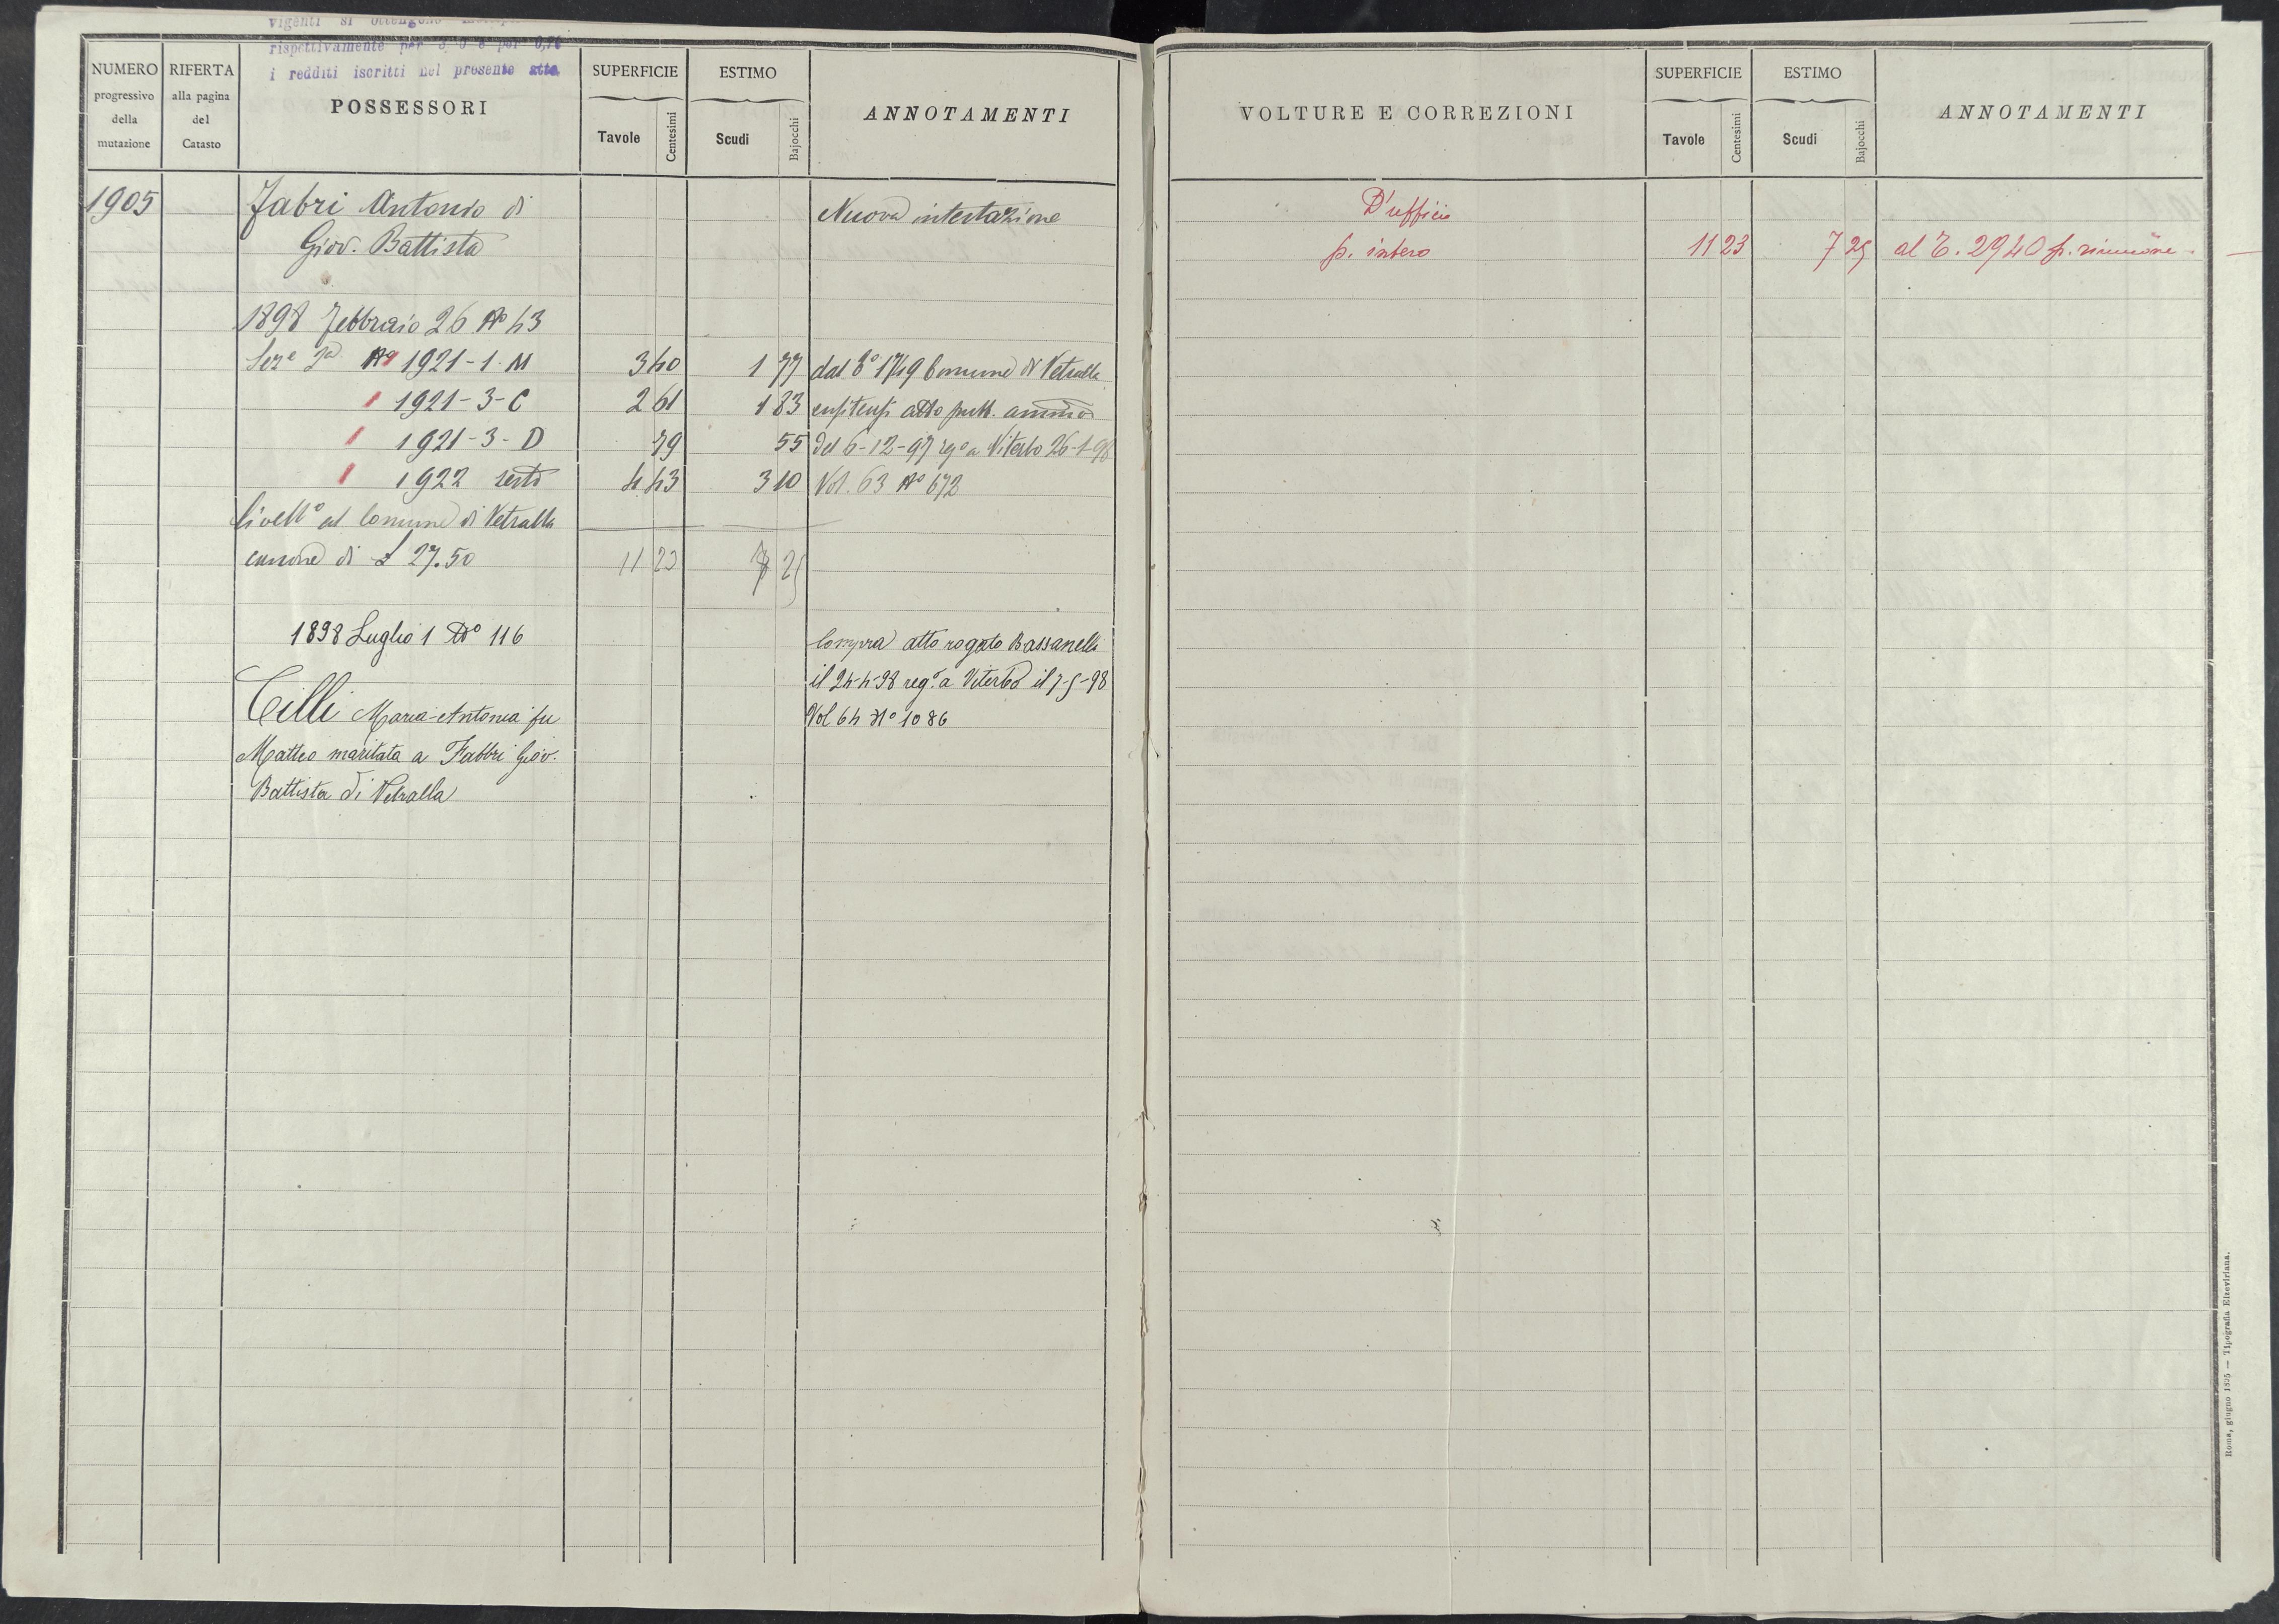 vigenti si ottengono
rispettivamente per 3 0 e per 0,75
i redditi iscritti nel presente atto
NUMERO progressivo della mutazione
RIFERTA alla pagina del Catasto
POSSESSORI
SUPERFICIE
Tavole Centesimi
ESTIMO
Scudi Bajocchi
ANNOTAMENTI
1905 Fabri Antonio di Nuova intestazione
Giov. Battista
1898 Febbraio 26 No 43
Sez.e 2a No 1921-1-M 3 40 1 77 dal T.o 1749 Comune di Vetralla
1921-3-C 2 61 1 83 enfiteusi atto pubb. ammvo
1921-3-D 79 55 del 6-12-97 rego a Viterbo 26-1-98
1922 resto 4 43 3 10 Vol. 63 No 672
livello al Comune di Vetralla
canone di £ 27.50 11 23 7 25
1898 Luglio 1 No 116 Compra atto rogato Bassanelli
il 24-4-98 reg.o a Viterbo il 7-5-98
Cilli Maria-Antonia fu Vol 64 No 1086
Matteo maritata a Fabbri Giov.
Battista di Vetralla
VOLTURE E CORREZIONI
SUPERFICIE
Tavole Centesimi
ESTIMO
Scudi Bajocchi
ANNOTAMENTI
D'ufficio
p. intero 11 23 7 25 al T. 2940 p. riunione.
Roma, giugno 1895 — Tipografia Elzeviriana.